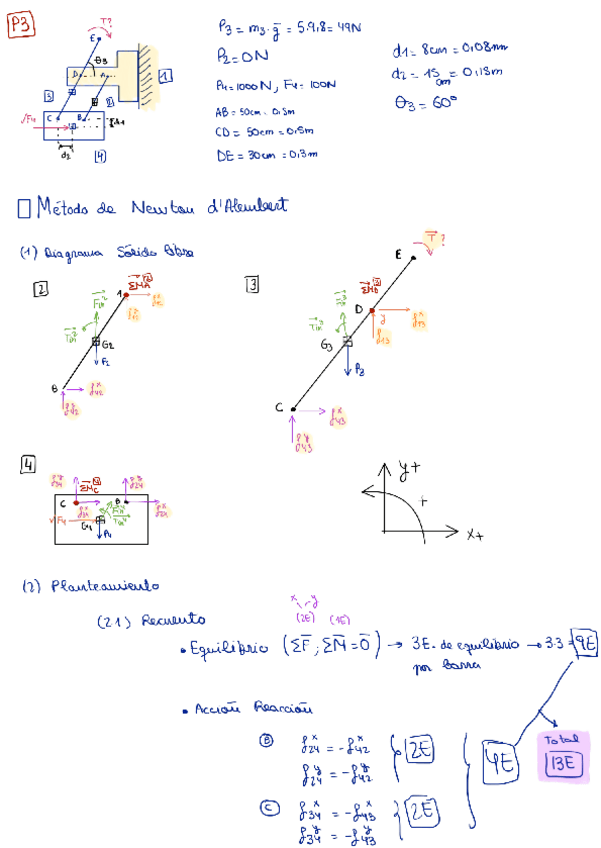 P3
T?
E
θ3
D
A
1
3
2
C
B
d1
F4
d2
4
P3 = m3·g = 5·9,8 = 49N
P2 = 0N
P4 = 1000N, F4 = 100N
AB = 50cm = 0,5m
CD = 50cm = 0,5m
DE = 30cm = 0,3m
d1 = 8cm = 0,08m
d2 = 15cm = 0,15m
θ3 = 60°
Método de Newton d'Alembert
(1) Diagrama Sólido libre
2
A
G2
P2
B
f42^y
f42^x
3
E
T?
D
f13^x
f13^y
G3
P3
C
f43^x
f43^y
4
f34^y
ΣMc
f24^y
C
B
f34^x
f24^x
F4
G4
P4
y+
+
x+
(2) Planteamiento
(2.1) Recuento
x y
(2E) (1E)
• Equilibrio (ΣF ; ΣM = 0) → 3E. de equilibrio por barra → 3·3 = 9E
• Acción Reacción
B f24^x = -f42^x
f24^y = -f42^y
2E
C f34^x = -f43^x
f34^y = -f43^y
2E
4E
Total
13E